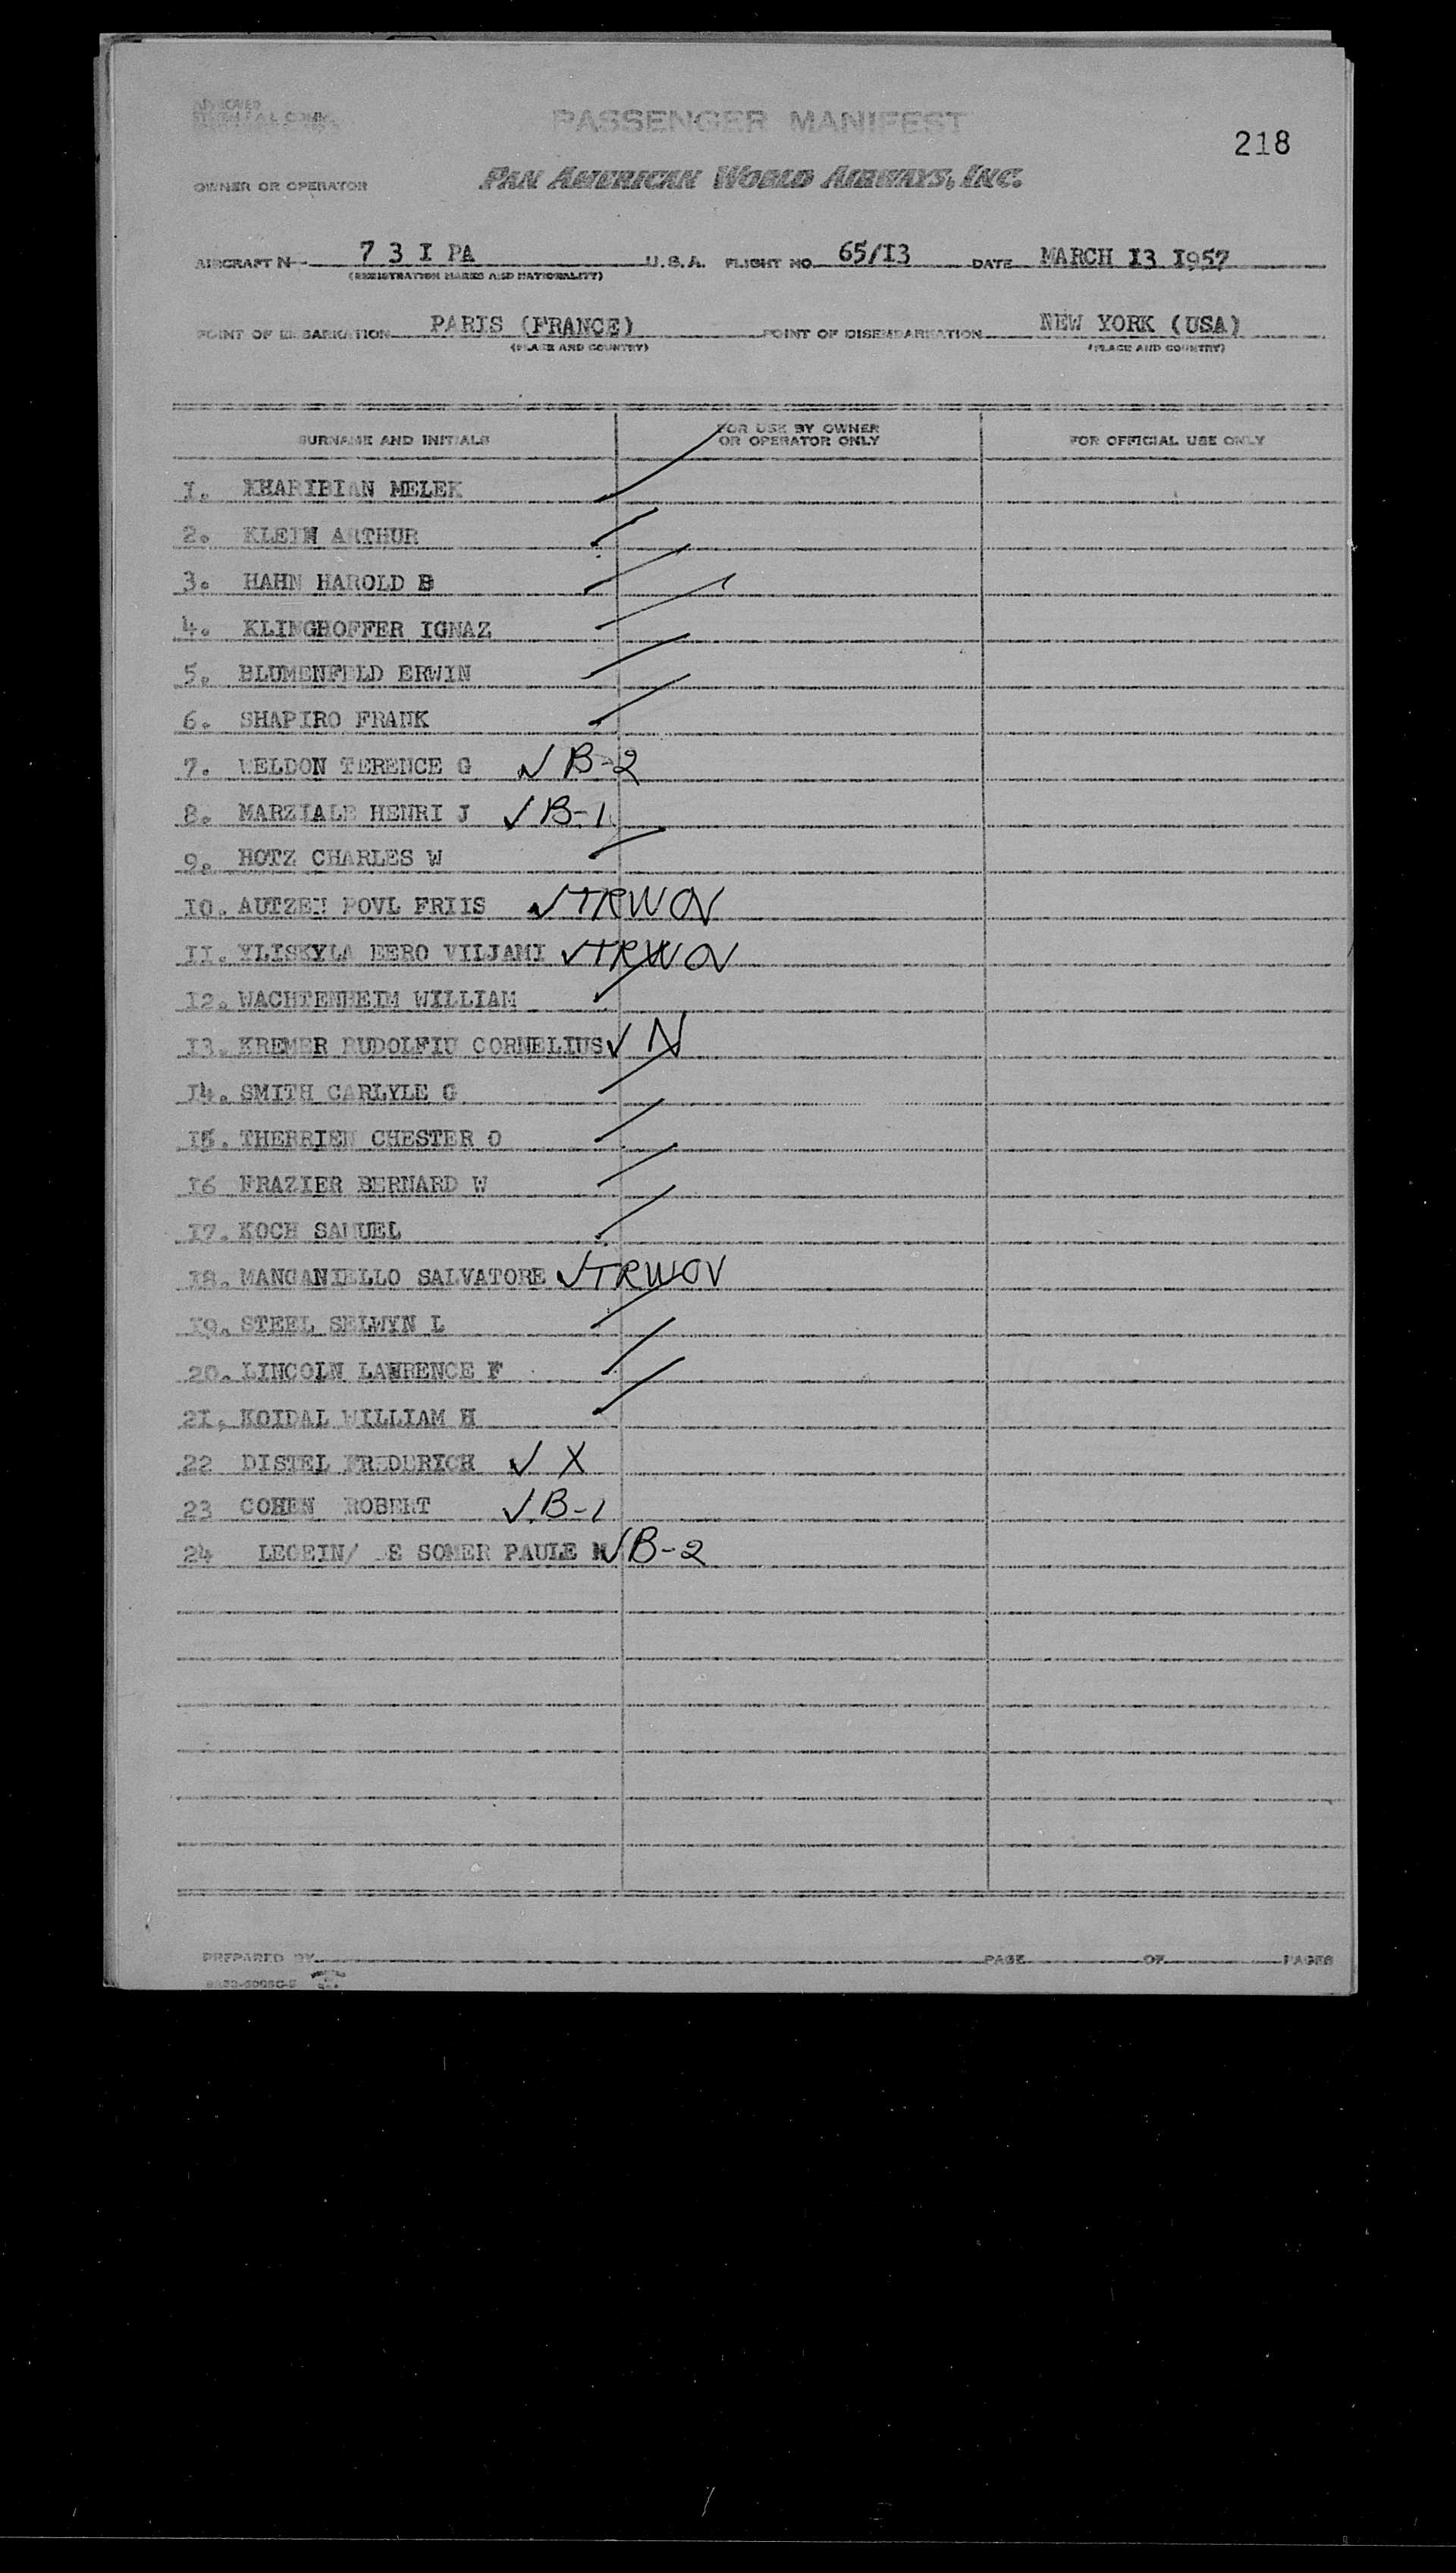 APPROVED
PASSENGER MANIFEST
218
OWNER OR OPERATOR PAN AMERICAN WORLD AIRWAYS, INC.
AIRCRAFT N- 7 3 I PA U.S.A. FLIGHT NO. 65/I3 DATE MARCH I3 I957
(REGISTRATION MARKS AND NATIONALITY)
POINT OF EMBARKATION PARIS (FRANCE) POINT OF DISEMBARKATION NEW YORK (USA)
(PLACE AND COUNTRY) (PLACE AND COUNTRY)
SURNAME AND INITIALS FOR USE BY OWNER OR OPERATOR ONLY FOR OFFICIAL USE ONLY
I. KHARIBIAN MELEK
2. KLEIN ARTHUR
3. HAHN HAROLD B
4. KLINGHOFFER IGNAZ
5. BLUMENFELD ERWIN
6. SHAPIRO FRANK
7. WELDON TERENCE G ✓ B-2
8. MARZIALE HENRI J ✓ B-1
9. HOTZ CHARLES W
I0. AUTZEN POVL FRIIS ✓ TRWOV
II. YLISKYLA EERO VILJAMI ✓ TRWOV
I2. WACHTENHEIM WILLIAM
I3. KREMER RUDOLFIU CORNELIUS ✓ N
I4. SMITH CARLYLE G
I5. THERRIEN CHESTER O
I6 FRAZIER BERNARD W
I7. KOCH SAMUEL
I8. MANGANIELLO SALVATORE ✓ TRWOV
I9. STEEL SELWYN L
20. LINCOLN LAWRENCE F
2I. KOIDAL WILLIAM H
22 DISTEL FREDURICH ✓ X
23 COHEN ROBERT ✓ B-1
24 LEGEIN/ DE SOMER PAULE M ✓ B-2
PREPARED BY PAGE OF PAGES